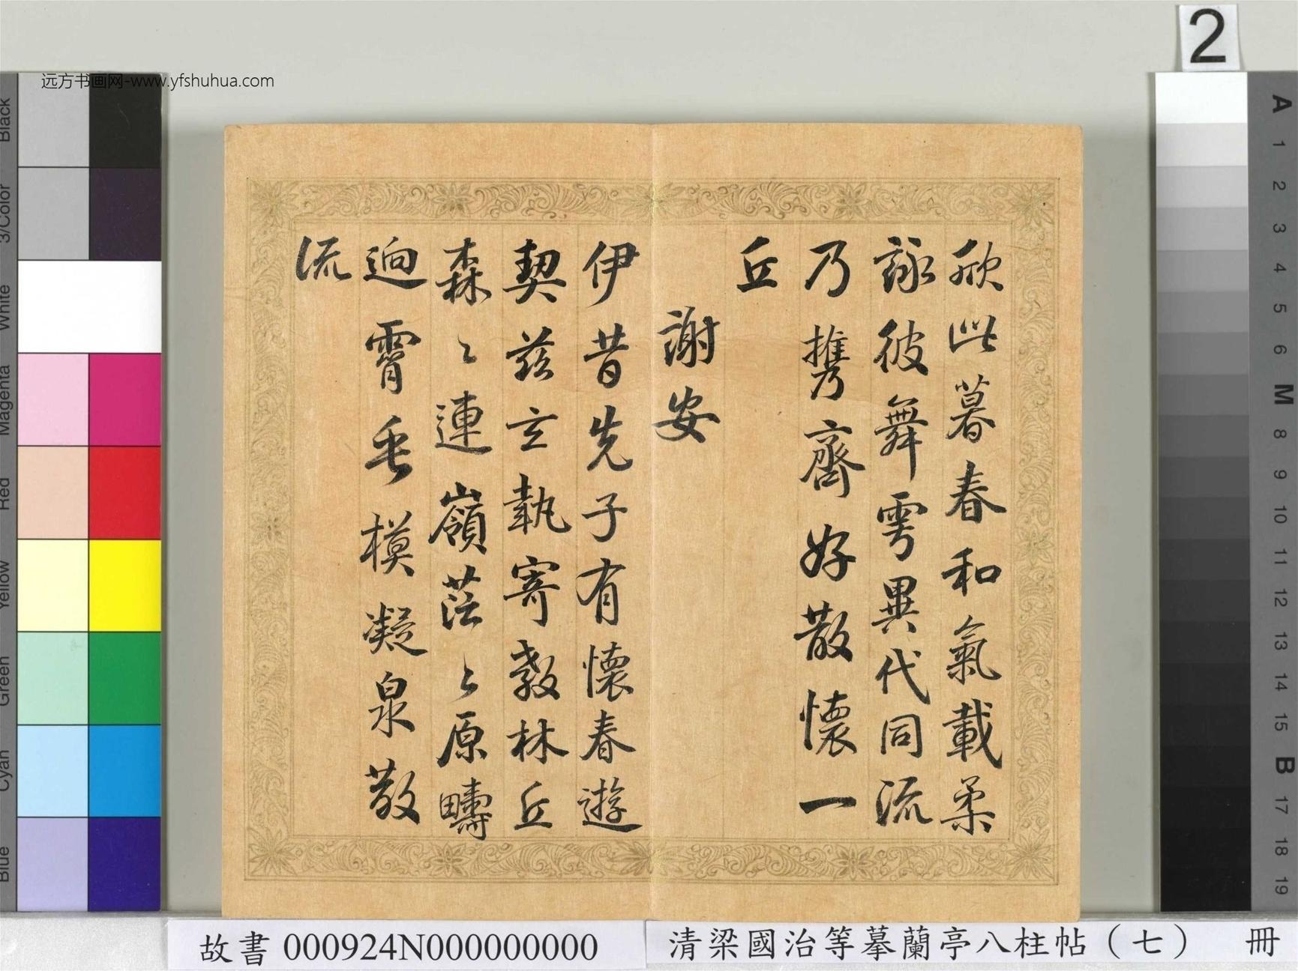 2
远方书画网-www.yfshuhua.com
欣此暮春和氣載柔
詠彼舞雩異代同流
乃攜齊好散懷一
丘
謝安
伊昔先子有懷春遊
契茲言執寄敖林丘
森々連嶺茫々原疇
迥霄垂模凝泉散
流
Black
3/Color
White
Magenta
Red
Yellow
Green
Cyan
Blue
A
1
2
3
4
5
6
M
8
9
10
11
12
13
14
15
B
17
18
19
故書 000924N000000000
清梁國治等摹蘭亭八柱帖（七） 冊